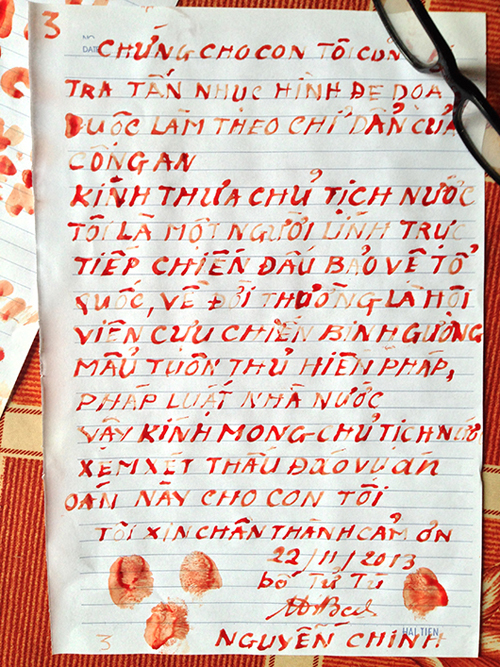 3
NO
DATE
CHỨNG CHO CON TÔI CŨNG
TRA TẤN NHỤC HÌNH ĐE DỌA
BUỘC LÀM THEO CHỈ DẪN CỦA
CÔNG AN
KÍNH THƯA CHỦ TỊCH NƯỚC
TÔI LÀ MỘT NGƯỜI LÍNH TRỰC
TIẾP CHIẾN ĐẤU BẢO VỆ TỔ
QUỐC, VỀ ĐỜI THƯỜNG LÀ HỘI
VIÊN CỰU CHIẾN BINH GƯƠNG
MẪU TUÔN THỦ HIẾN PHÁP,
PHÁP LUẬT NHÀ NƯỚC
VẬY KÍNH MONG CHỦ TỊCH NƯỚC
XEM XÉT THẤU ĐÁO VỤ ÁN
OAN NÀY CHO CON TÔI
TÔI XIN CHÂN THÀNH CẢM ƠN
22/11/2013
bố Tử Tù
HẢI TIẾN
3 NGUYỄN CHINH